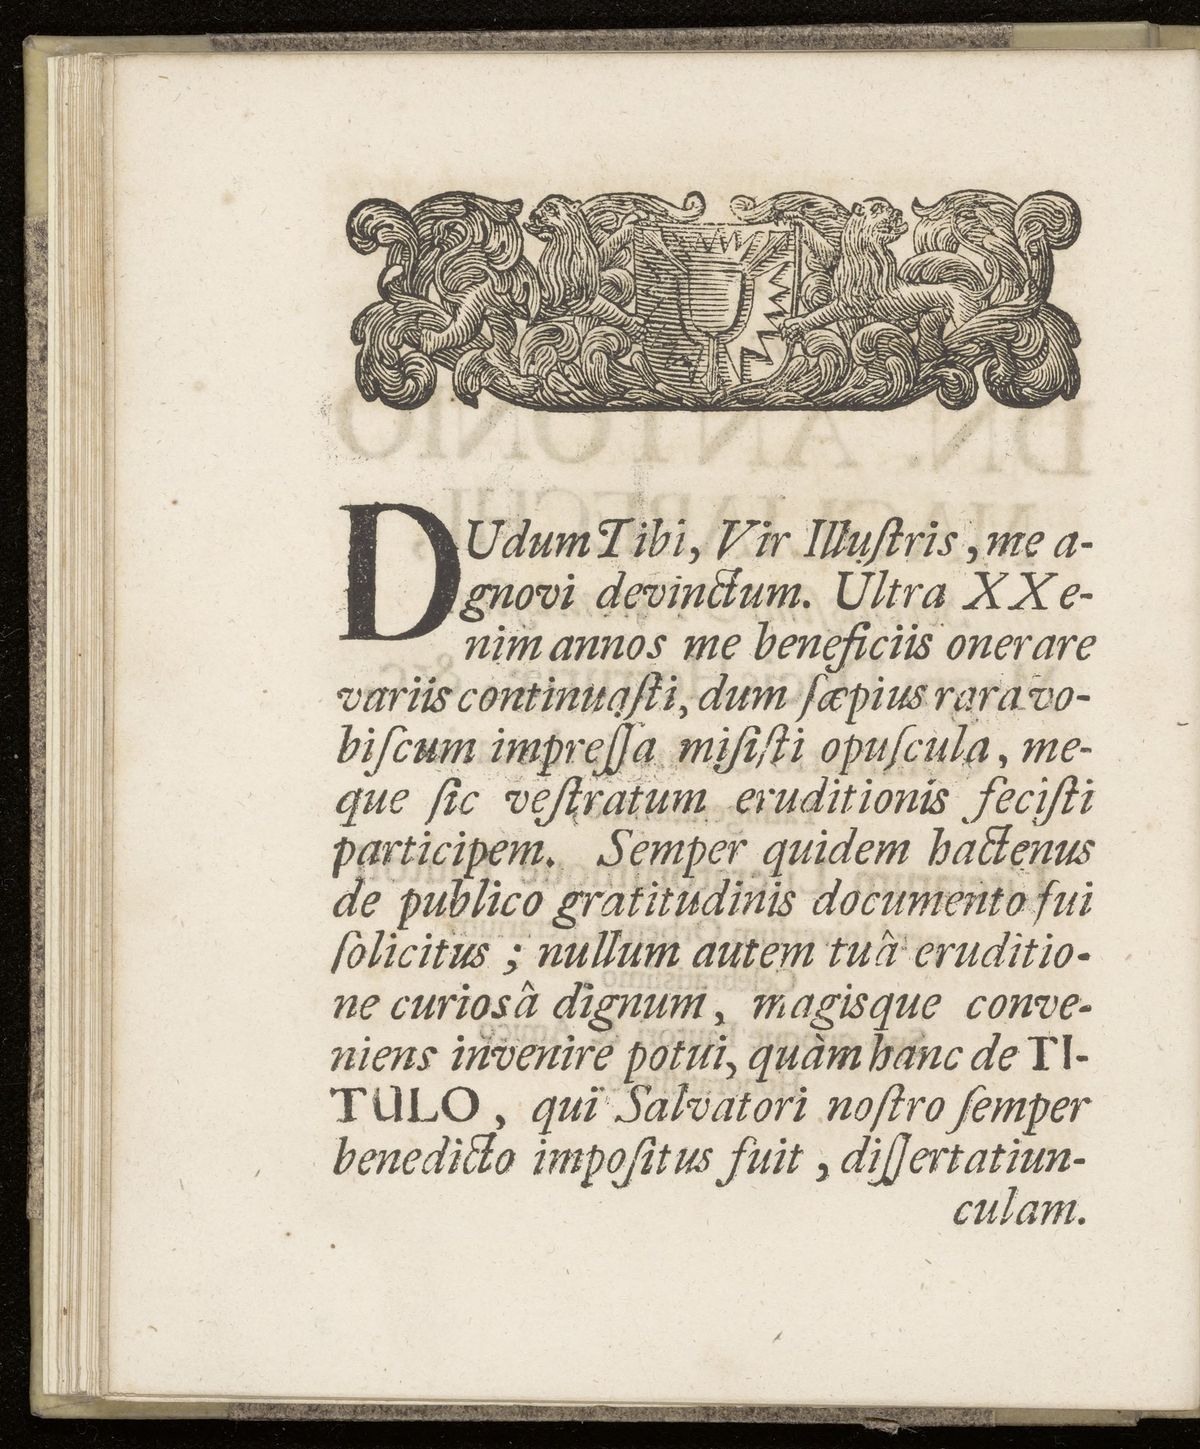 DUdum Tibi, Vir Illuſtris, me a-
gnovi devinctum. Ultra XX e-
nim annos me beneficiis onerare
variis continuaſti, dum ſæpius rara vo-
biſcum impreſſa miſiſti opuſcula, me-
que ſic veſtratum eruditionis feciſti
participem. Semper quidem hactenus
de publico gratitudinis documento fui
ſolicitus ; nullum autem tuâ eruditio-
ne curiosâ dignum, magisque conve-
niens invenire potui, quàm hanc de TI-
TULO, qui Salvatori noſtro ſemper
benedicto impoſitus fuit, diſſertatiun-
culam.